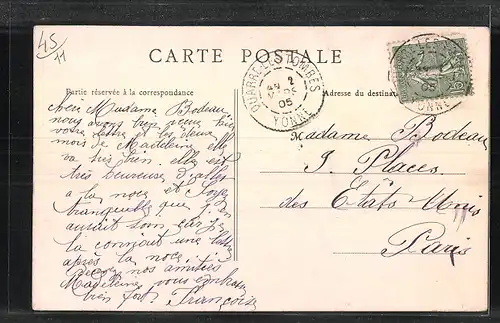 45
11
CARTE POSTALE
Partie réservée à la correspondance
Adresse du destinataire
QUARRÉ-LES-TOMBES
2
05
YONNE
Madame Bodeau
nous avons bien
votre lettre et les deux
mois de Madeleine elle
va très bien. elle est
très heureuse d'aller
a la noce
tranquille que j'en
aurait soin car je
la connait une
après la noce.
nos amitiés
Madeleine vous embrasse
bien fort Françoise
Madame Bodeau
5. Places
des États Unis
Paris